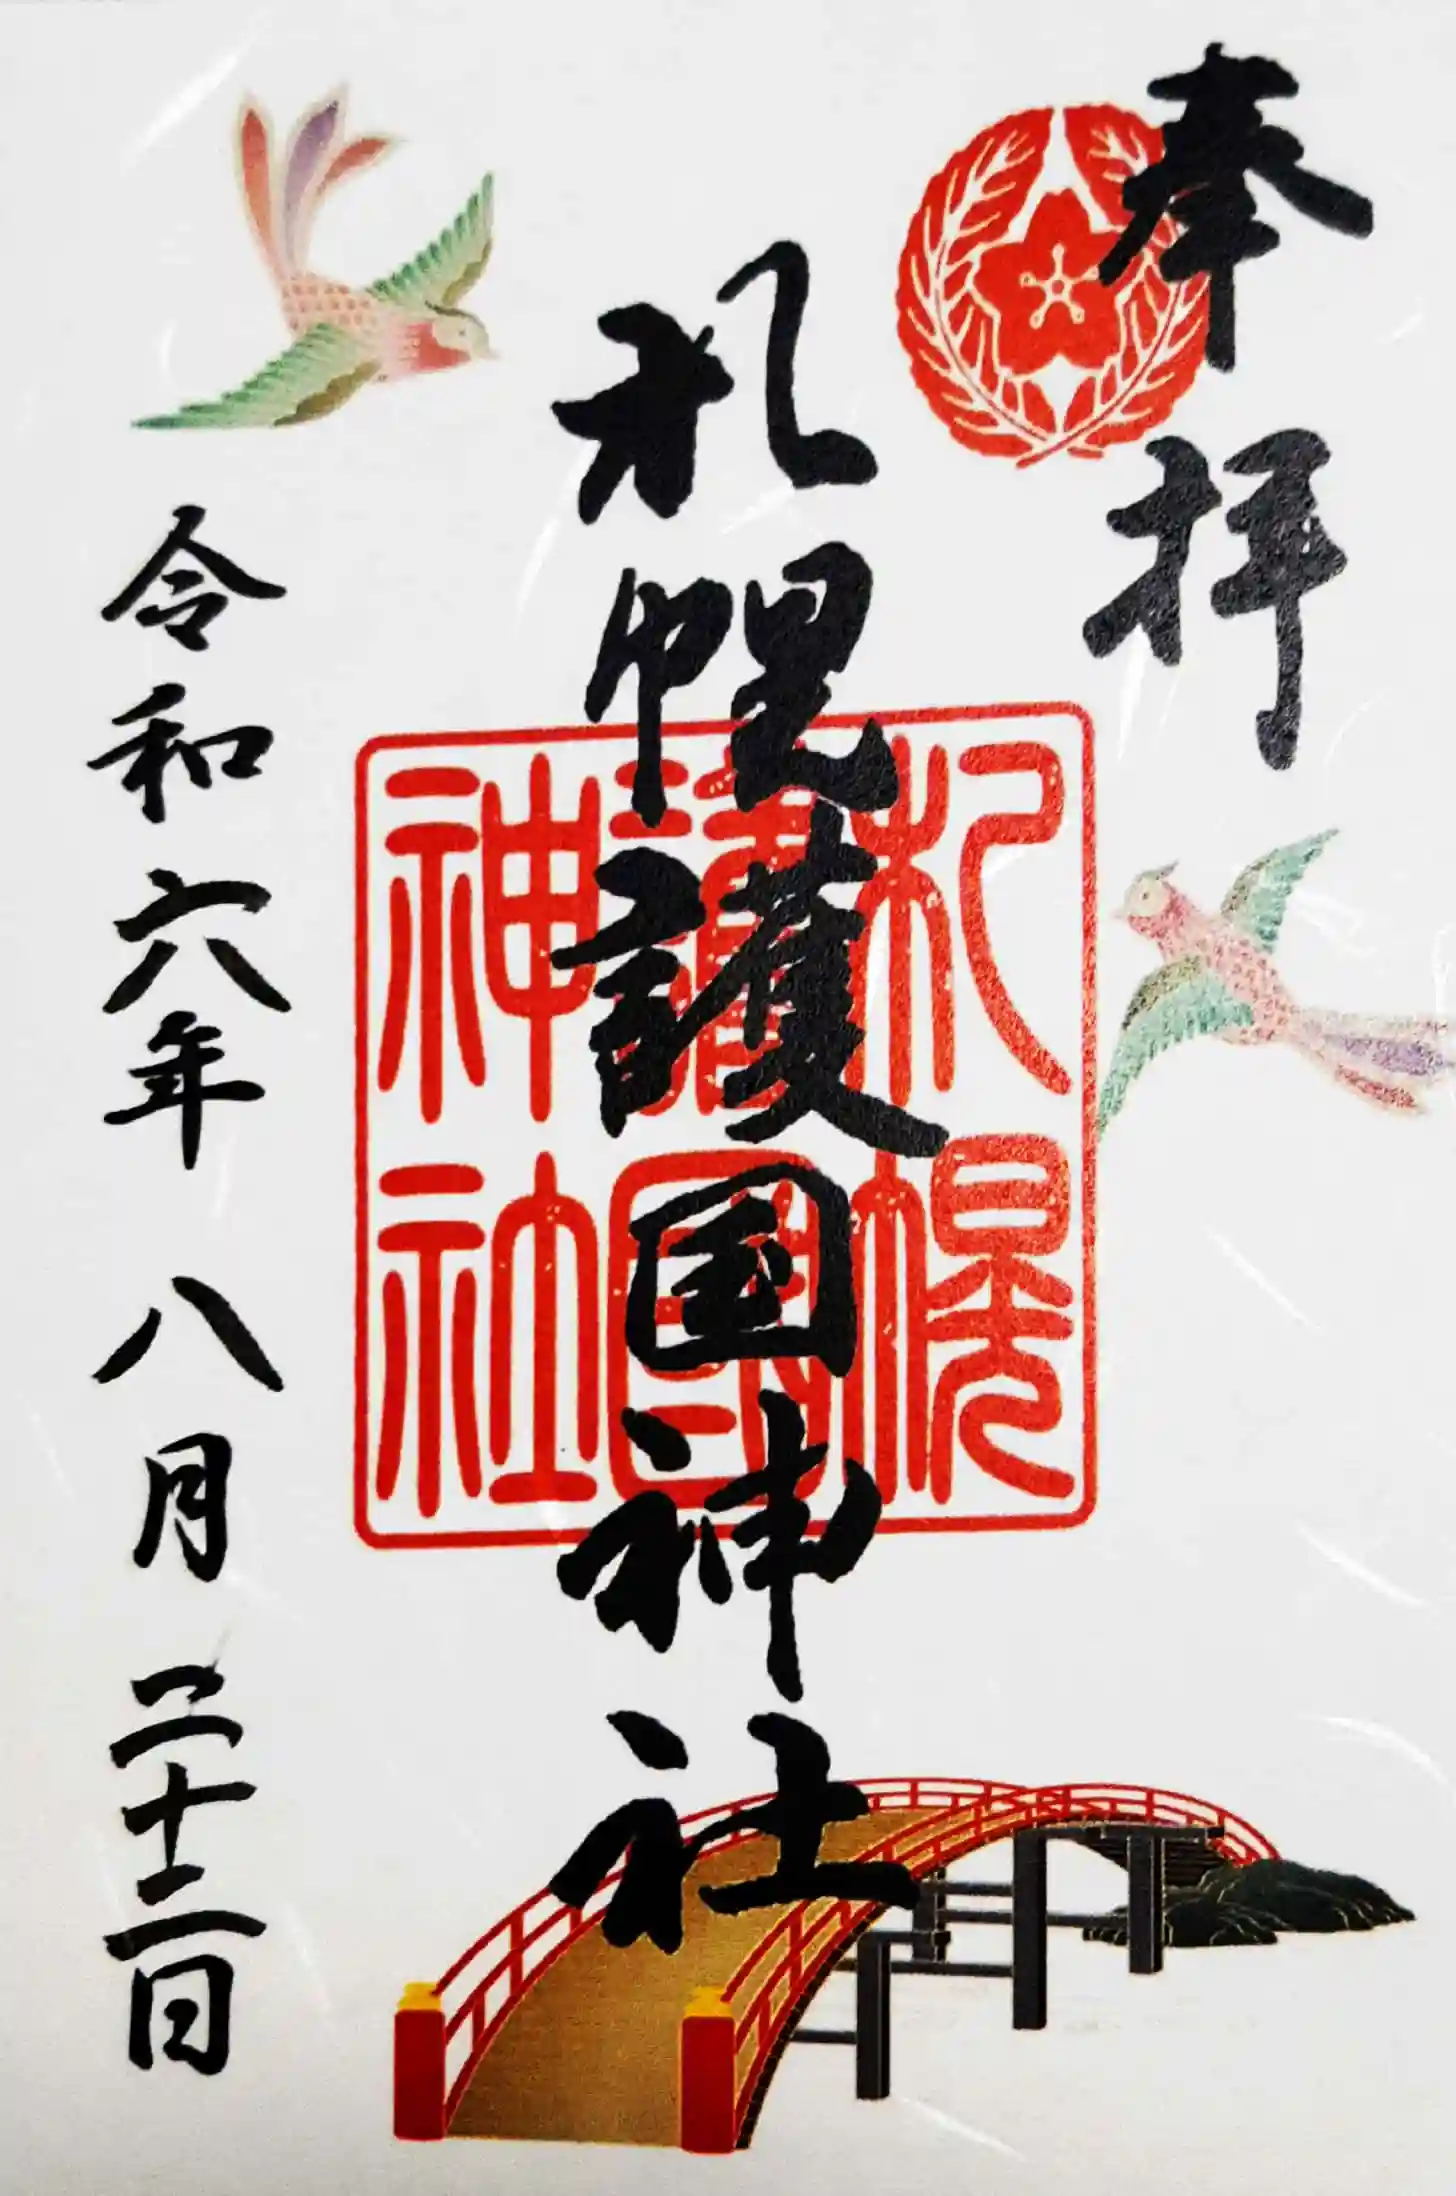 奉拝
札幌護国神社
札幌
護國
神社
令和六年 八月 二十二日